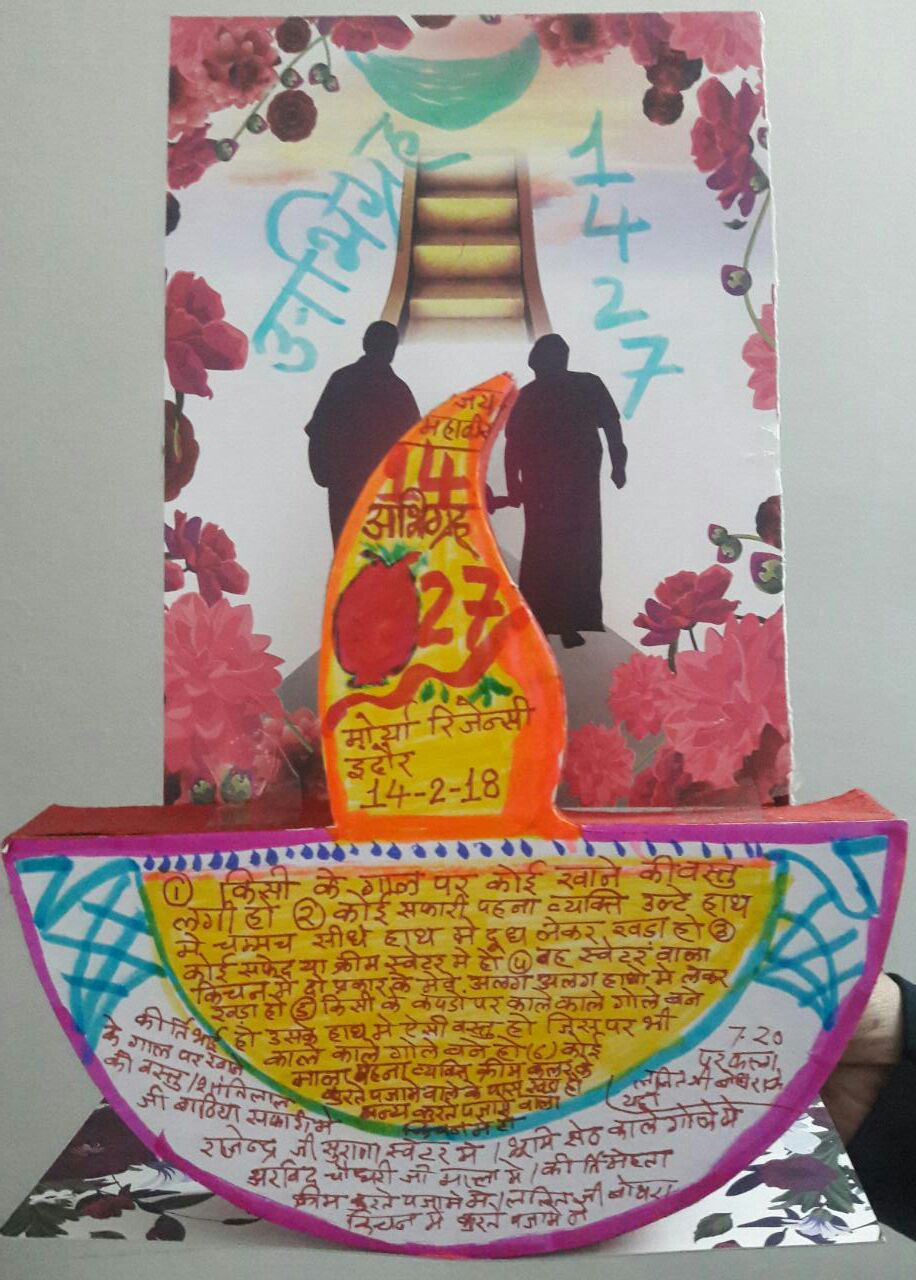 अभिग्रह
1
4
2
7
जय
महावीर
14
अभिग्रह
27
मोर्या रिजेन्सी
इंदौर
14-2-18
① किसी के गाल पर कोई खाने की वस्तु
लगी हो ② कोई सफारी पहना व्यक्ति उल्टे हाथ
मे चम्मच सीधे हाथ मे दूध लेकर खडा हो ③
कोई सफेद या क्रीम स्वेटर मे हो ④ वह स्वेटर वाला
किचन से दो प्रकार के मेवे अलग अलग हाथो मे लेकर
खडा हो ⑤ किसी के कपडो पर काले काले गोले बने
हो उसके हाथ मे ऐसी वस्तु हो जिस पर भी
काले काले गोले बने हो (6) कोई
माला पहना व्यक्ति क्रीम कलर के
कुरते पजामे वाले के पास खडा हो
अन्य कुरते पजामे वाला
किचन मे हो
कीर्ति भाई
के गाल पर खाने
की वस्तु / शांतिलाल
जी बाठिया सफारी मे
राजेन्द्र जी सुराणा स्वेटर मे / भूमि सेठ काले गोले मे
अरविंद चौधरी जी माला मे / कीर्ति मेहता
क्रीम कुरते पजामे मे / ललित जी बोथरा
किचन मे कुरते पजामे मे
7-20
पर फला